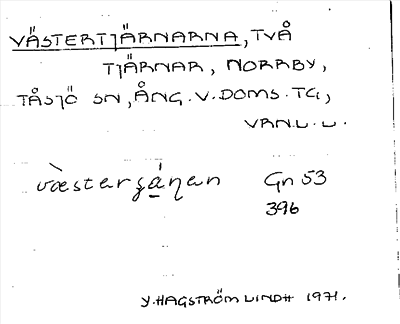 VÄSTERTJÄRNARNA, TVÅ
TJÄRNAR, NORRBY,
TÅSJÖ SN, ÅNG. V. DOMS. TG,
VRN.L.L.
Gn 53
396
Y. HAGSTRÖM LINDH 1971.